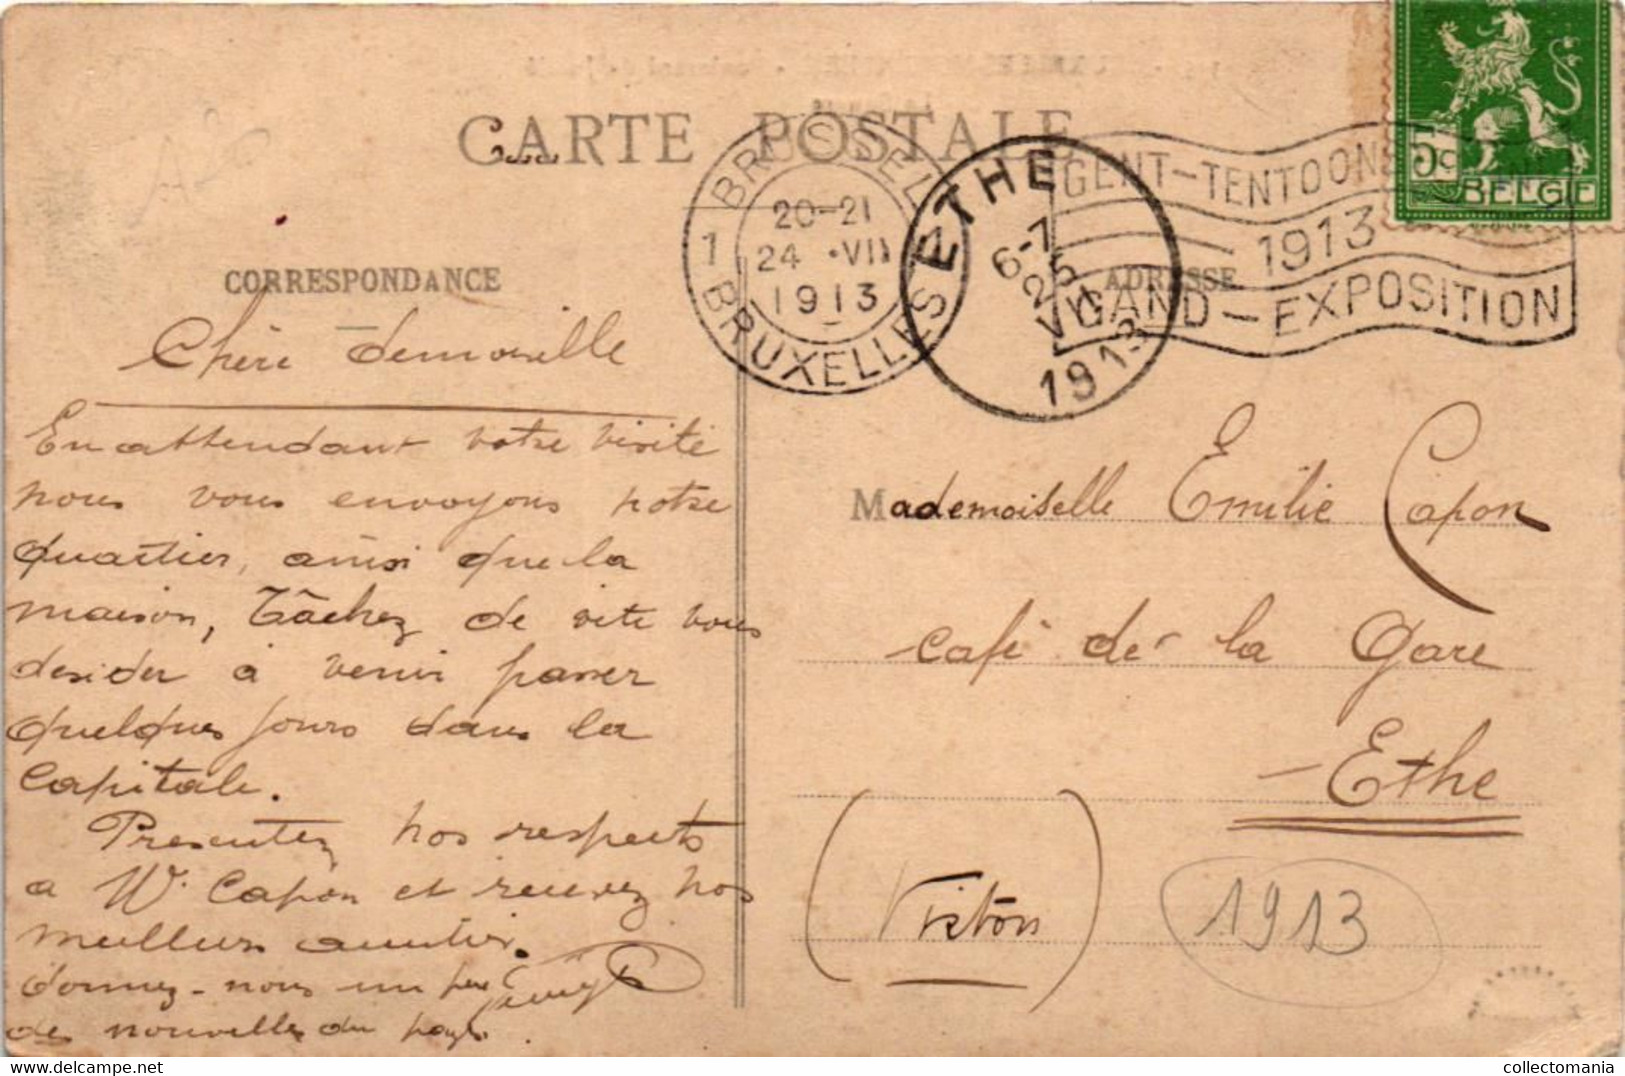 CARTE POSTALE
5c
BELGIË
1 BRUSSEL
20-21
24 · VII
1913
BRUXELLES
ETHE
6-7
25
VII
1913
GENT-TENTOON
1913
GAND-EXPOSITION
CORRESPONDANCE
ADRESSE
Chère demoiselle
En attendant votre visite
nous vous envoyons notre
quartier, ainsi que la
maison, Tâchez de vite vous
desider à venir passer
quelques jours dans la
Capitale.
Presentez nos respects
a Mr Capon et recevez nos
meilleurs amitiés.
donnez-nous un peu
des nouvelles du pays.
Mademoiselle Emilie Capon
café de la Gare
Ethe
(Virton)
1913
collectomania